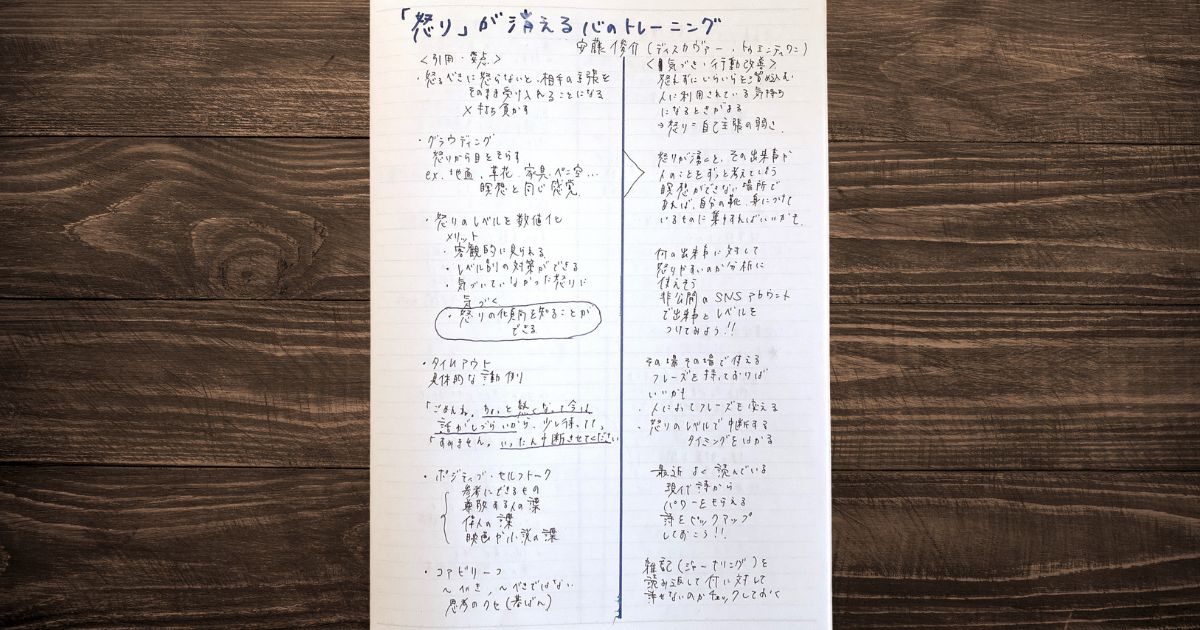 「怒り」が消える心のトレーニング
安藤俊介(ディスカヴァー・トゥエンティワン)
〈引用・要点〉
・怒るべきに怒らないと、相手の主張を
そのまま受け入れることになる
×打ち負かす
・グラウディング
怒りから目をそらす
ex.地面、草花、家具、ペン、空…
瞑想と同じ感覚
・怒りのレベルを数値化
メリット
・客観的に見られる
・レベル別の対策ができる
・気づいていなかった怒りに
気づく
・怒りの傾向を知ることが
できる
・タイムアウト
具体的な言動例
「ごめんね。ちょっと熱くなって今は
話がしづらいから、少し待ってて」
「すみません。いったん中断させてください
・ポジティブ・セルフトーク
参考にできるもの
尊敬する人の言葉
偉人の言葉
映画や小説の言葉
・コアビリーフ
〜べき、〜べきではない
思考のクセ(基ばん)
〈気づき・行動改善〉
怒れずにいらいらをを溜め込む
人に利用されている気持ち
になるときがある
→怒り=自己主張の弱さ
怒りが湧くと、その出来事や
人のことをずっと考えてしまう
瞑想ができない場所で
あれば、自分の靴、身につけて
いるものに集中すればいいかも
何の出来事に対して
怒りやすいのか分析に
使えそう
非公開のSNSアカウント
で出来事とレベルを
つけてみよう!!
その場その場で使える
フレーズを持っておけば
いいかも
・人によってフレーズを変える
・怒りのレベルで中断する
タイミングをはかる
最近よく読んでいる
現代詩から
パワーをもらえる
詩をピックアップ
しておこう!!
雑記(ジャーナリング)を
読み返して何に対して
許せないのかチェックしておく